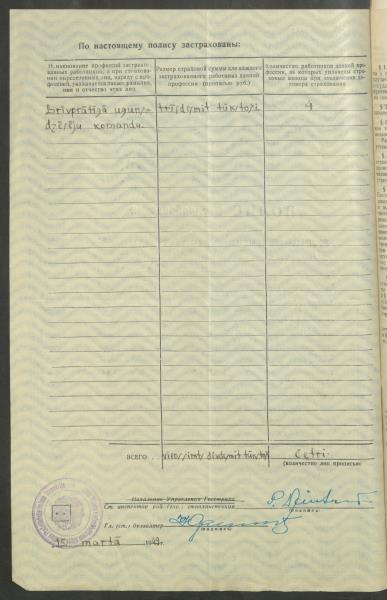 По настоящему полису застрахованы:
Наименование профессий застрахо-
ванных работников, а при страхова-
нии определенных лиц, наряду с про-
фессией, указываются также фамилия,
имя и отчество этих лиц
Размер страховой суммы для каждого
застрахованного работника данной
профессии (прописью руб.)
Количество работников данной про-
фессии, за которых уплачены стра-
ховые взносы при заключении до-
говора страхования
Brīvprātīgā ugun/-
dzē/ēju komanda.
trī/de/mit tūk/to/i.
4
ВСЕГО
vien/imt/ divde/mit tūk/to/
Četri
(количество лиц прописью)
Начальник Управления Госстраха
Ст. инспектор
(подпись)
Гл. (ст.) бухгалтер
(подпись)
15 martā 1949.